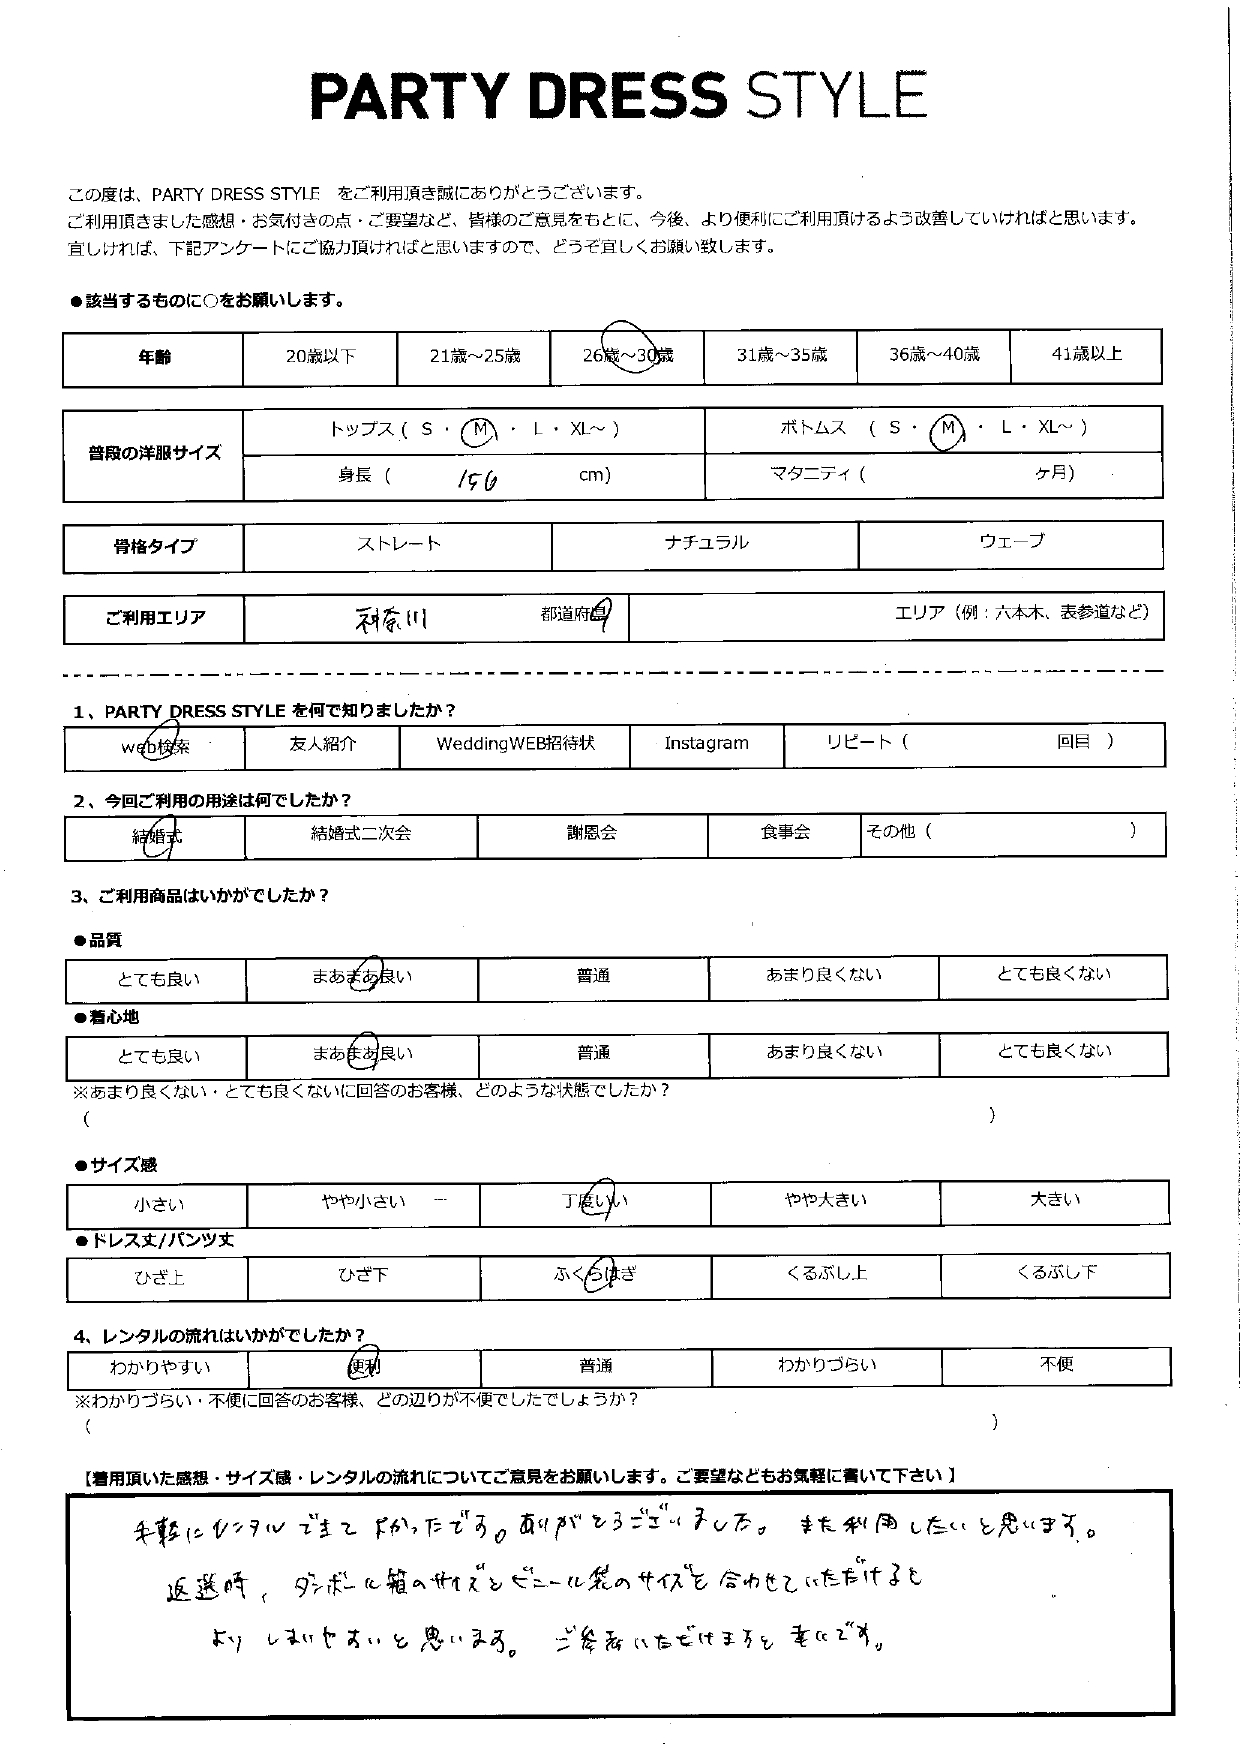 PARTY DRESS STYLE
この度は、PARTY DRESS STYLE をご利用頂き誠にありがとうございます。
ご利用頂きました感想・お気付きの点・ご要望など、皆様のご意見をもとに、今後、より便利にご利用頂けるよう改善していければと思います。
宜しければ、下記アンケートにご協力頂ければと思いますので、どうぞ宜しくお願い致します。
●該当するものに○をお願いします。
年齢 20歳以下 21歳～25歳 26歳～30歳 31歳～35歳 36歳～40歳 41歳以上
普段の洋服サイズ トップス ( S ・ M ・ L ・ XL～ ) ボトムス ( S ・ M ・ L ・ XL～ )
身長 ( 156 cm) マタニティ ( ヶ月)
骨格タイプ ストレート ナチュラル ウェーブ
ご利用エリア 神奈川 都道府県 エリア（例：六本木、表参道など）
1、PARTY DRESS STYLE を何で知りましたか？
web検索 友人紹介 WeddingWEB招待状 Instagram リピート ( 回目 )
2、今回ご利用の用途は何でしたか？
結婚式 結婚式二次会 謝恩会 食事会 その他 ( )
3、ご利用商品はいかがでしたか？
●品質
とても良い まあまあ良い 普通 あまり良くない とても良くない
●着心地
とても良い まあまあ良い 普通 あまり良くない とても良くない
※あまり良くない・とても良くないに回答のお客様、どのような状態でしたか？
( )
●サイズ感
小さい やや小さい 丁度いい やや大きい 大きい
●ドレス丈/パンツ丈
ひざ上 ひざ下 ふくらはぎ くるぶし上 くるぶし下
4、レンタルの流れはいかがでしたか？
わかりやすい 便利 普通 わかりづらい 不便
※わかりづらい・不便に回答のお客様、どの辺りが不便でしたでしょうか？
( )
【着用頂いた感想・サイズ感・レンタルの流れについてご意見をお願いします。ご要望などもお気軽に書いて下さい】
手軽にレンタルできてよかったです。ありがとうございました。また利用したいと思います。
返送時、ダンボール箱のサイズとビニール袋のサイズを合わせていただけると
よりしまいやすいと思います。ご参考いただけますと幸いです。